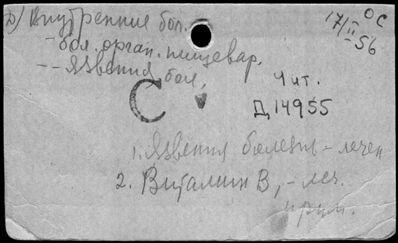 Д) Внутренние бол.
ОС
17/II 56
- бол. орган. пищевар.
-- Язвення бол.
С
Чит.
Д 14955
1. Язвення болезнь - лечен
2. Виталин В, - леч.
прим.